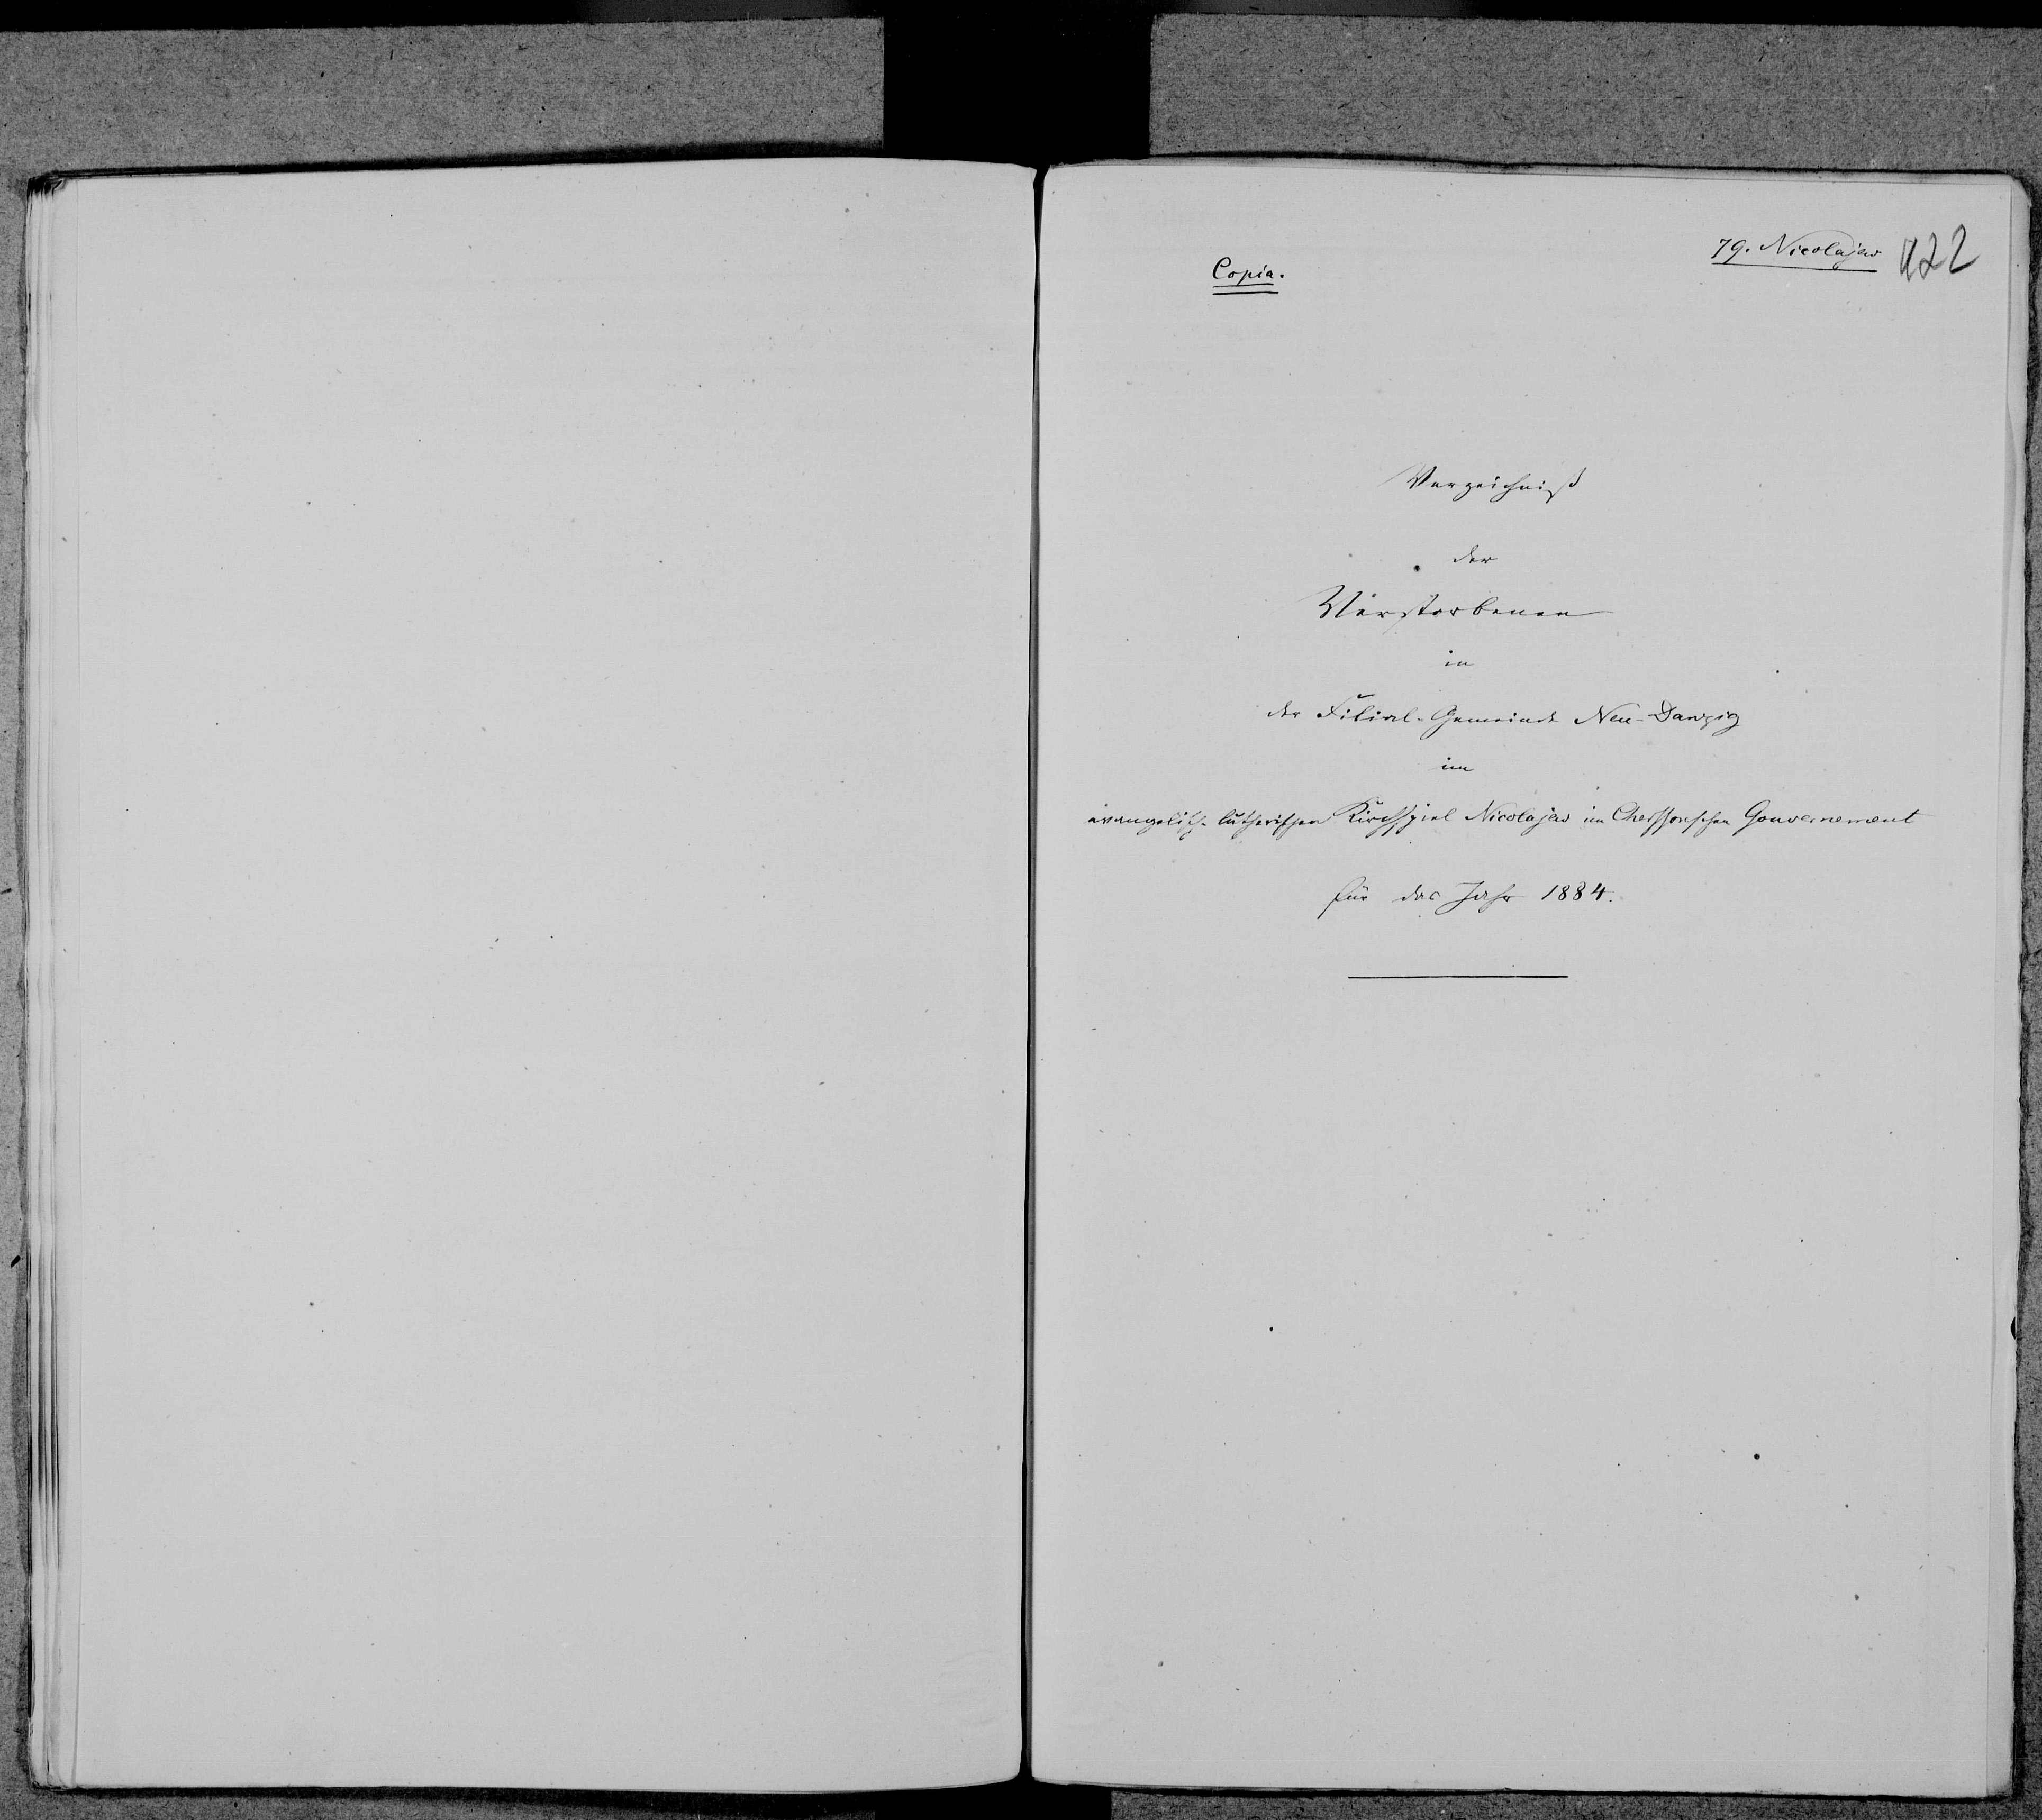 79. Nicolajew
422
Copia.
Verzeichniß
der
Verstorbenen
in
der Filial-Gemeinde Neu-Danzig
im
evangelisch-lutherischen Kirchspiel Nicolajew im Cherssonschen Gouvernement
für das Jahr 1884.